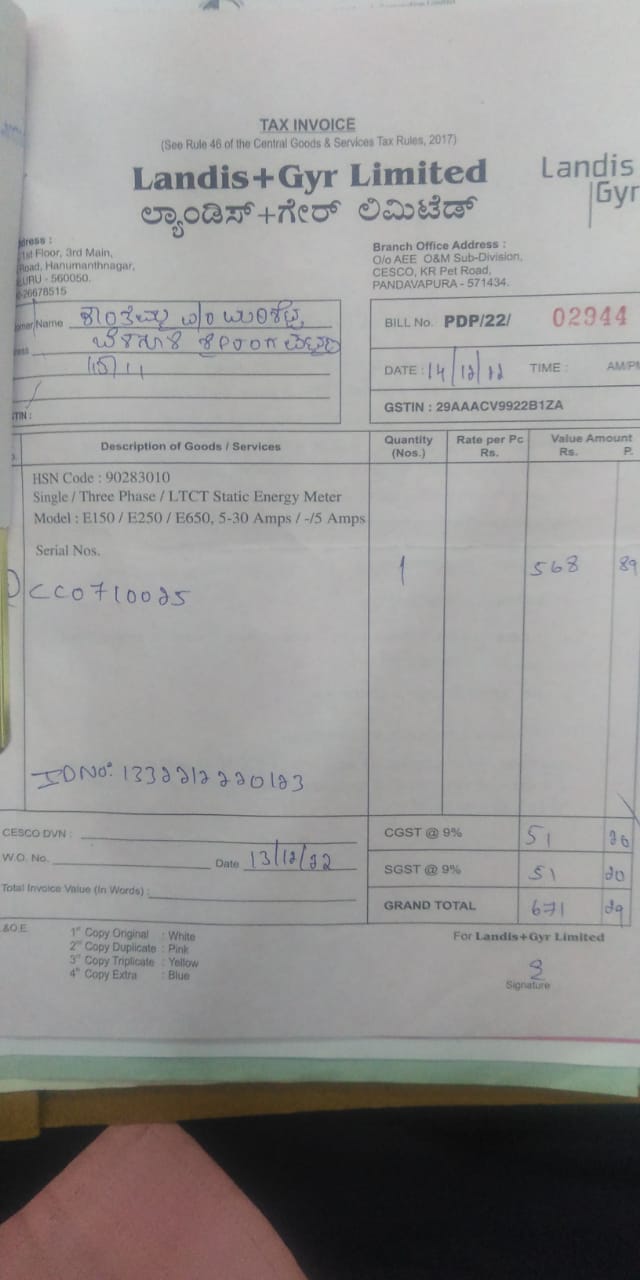 TAX INVOICE
(See Rule 46 of the Central Goods & Services Tax Rules, 2017)
Landis+Gyr Limited
ಲ್ಯಾಂಡಿಸ್+ಗೇರ್ ಲಿಮಿಟೆಡ್
Landis
Gyr
1st Floor, 3rd Main,
Road, Hanumanthnagar,
URU - 560050.
26678515
Branch Office Address :
O/o AEE O&M Sub-Division,
CESCO, KR Pet Road,
PANDAVAPURA - 571434.
Name
BILL No. PDP/22/ 02944
DATE : 14/12/22 TIME : AM/PM
TIN :
GSTIN : 29AAACV9922B1ZA
Description of Goods / Services
Quantity (Nos.)
Rate per Pc Rs.
Value Amount Rs. P.
HSN Code : 90283010
Single / Three Phase / LTCT Static Energy Meter
Model : E150 / E250 / E650, 5-30 Amps / -/5 Amps
Serial Nos.
CC0710025 1 568 89
ID No: 1332212220123
CESCO DVN :
CGST @ 9% 51 20
W.O. No. Date 13/12/22
SGST @ 9% 51 20
Total Invoice Value (In Words) :
GRAND TOTAL 671 29
&O.E.
1st Copy Original : White
2nd Copy Duplicate : Pink
3rd Copy Triplicate : Yellow
4th Copy Extra : Blue
For Landis+Gyr Limited
Signature